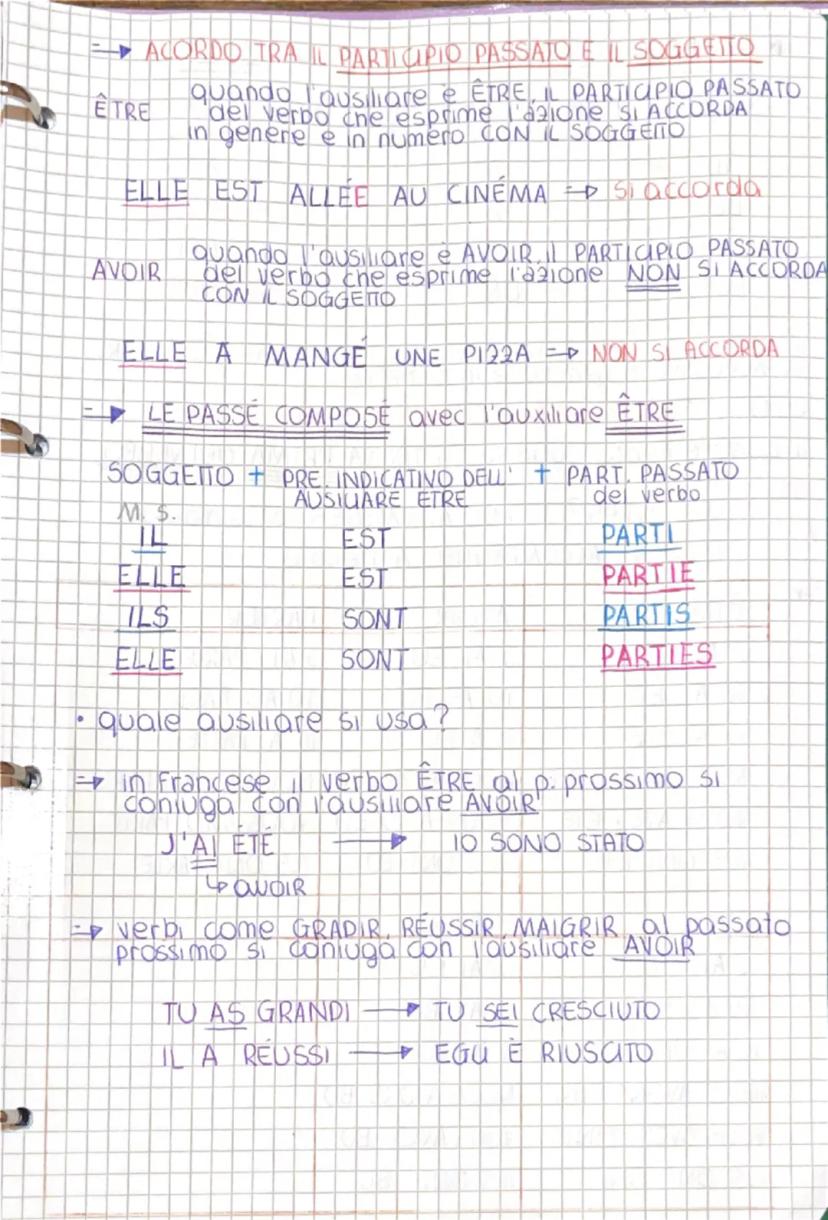 ⇒ ACORDO TRA IL PARTICIPIO PASSATO E IL SOGGETTO
ÊTRE quando l'ausiliare è ÊTRE, IL PARTICIPIO PASSATO
del verbo che esprime l'azione SI ACCORDA
in genere e in numero CON IL SOGGETTO
ELLE EST ALLÉE AU CINÉMA ⇒ Si accorda
AVOIR quando l'ausiliare è AVOIR, il PARTICIPIO PASSATO
del verbo che esprime l'azione NON SI ACCORDA
CON IL SOGGETTO
ELLE A MANGÉ UNE PIZZA ⇒ NON SI ACCORDA
⇒ LE PASSÉ COMPOSÉ avec l'auxiliare ÊTRE
SOGGETTO + PRE. INDICATIVO DELL' + PART. PASSATO
AUSILIARE ETRE del verbo
M. S.
IL EST PARTI
ELLE EST PARTIE
ILS SONT PARTIS
ELLE SONT PARTIES
• quale ausiliare si usa?
⇒ in Francese il verbo ÊTRE al p. prossimo si
coniuga con l'ausiliare AVOIR
J'AI ÉTÉ → IO SONO STATO
↳ AVOIR
⇒ verbi come GRADIR, RÉUSSIR, MAIGRIR al passato
prossimo si coniuga con l'ausiliare AVOIR
TU AS GRANDI → TU SEI CRESCIUTO
IL A RÉUSSI → EGLI È RIUSCITO